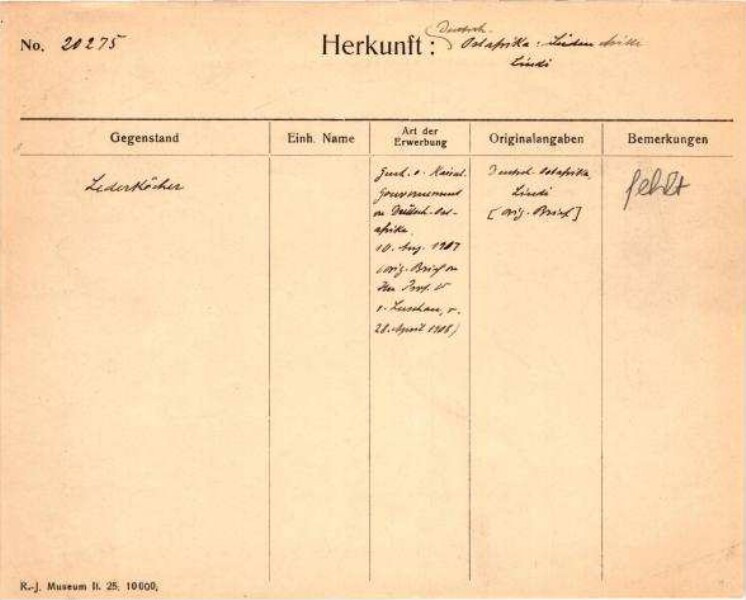 No. 20275
Herkunft: Deutsch-
Ostafrika:
Lindi
Gegenstand
Einh. Name
Art der
Erwerbung
Originalangaben
Bemerkungen
Lederköcher
Gesch. v. Kaiserl.
Gouvernement
von Deutsch-Ost-
afrika.
10. Aug. 1907
(orig. Brief an
Herr Prof.
v. Luschan, v.
28. April 1908)
Deutsch-Ostafrika,
Lindi
[orig. Brief]
fehlt
R.-J. Museum II. 25. 10000.